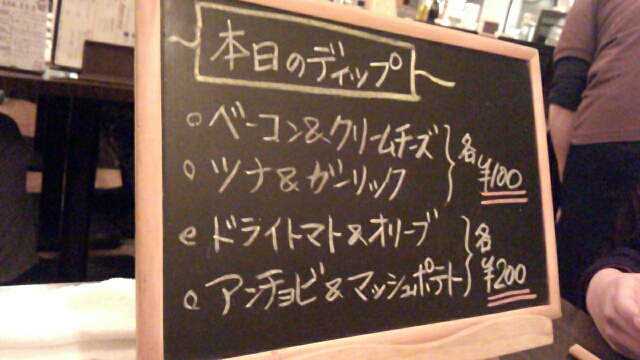 本日のディップ
○ベーコン&クリームチーズ
○ツナ&ガーリック
各¥100
○ドライトマト&オリーブ
○アンチョビ&マッシュポテト
各¥200